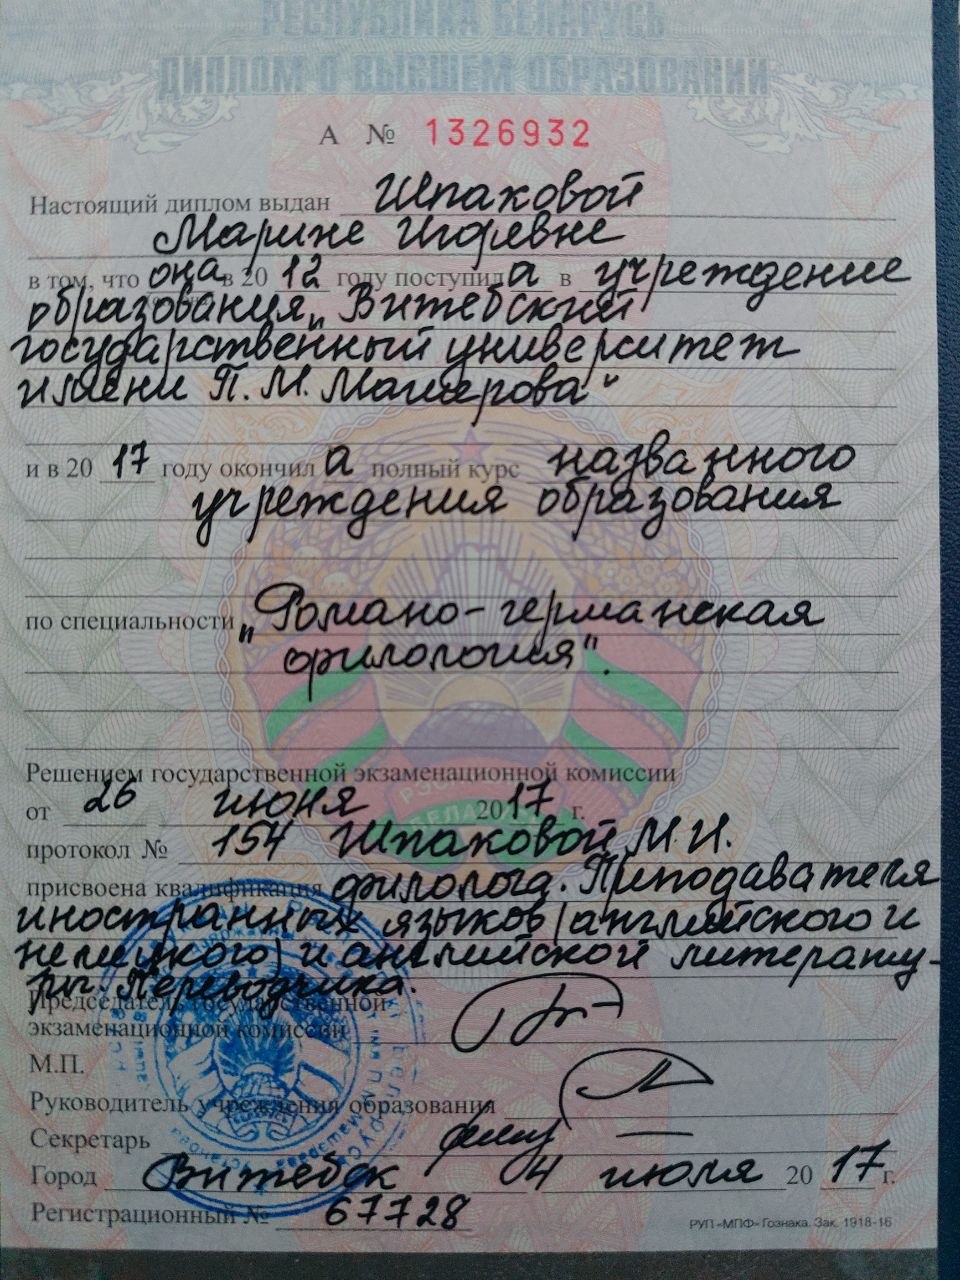 РЕСПУБЛИКА БЕЛАРУСЬ
ДИПЛОМ О ВЫСШЕМ ОБРАЗОВАНИИ
А № 1326932
Настоящий диплом выдан Шпаковой
Марине Игоревне
в том, что она в 20 12 году поступила в учреждение
образования „Витебский
государственный университет
имени П.М. Машерова“
и в 20 17 году окончила полный курс названного
учреждения образования
по специальности „Романо-германская
филология“.
Решением государственной экзаменационной комиссии
от 26 июня 2017 г.
протокол № 154 Шпаковой М.И.
присвоена квалификация филолога. Преподавателя
иностранных языков (английского и
немецкого) и английской литерату-
ры. Переводчика.
Председатель государственной
экзаменационной комиссии
М.П.
Руководитель учреждения образования
Секретарь
Город Витебск 4 июля 20 17 г.
Регистрационный № 67728
РУП «МПФ» Гознака. Зак. 1918-16